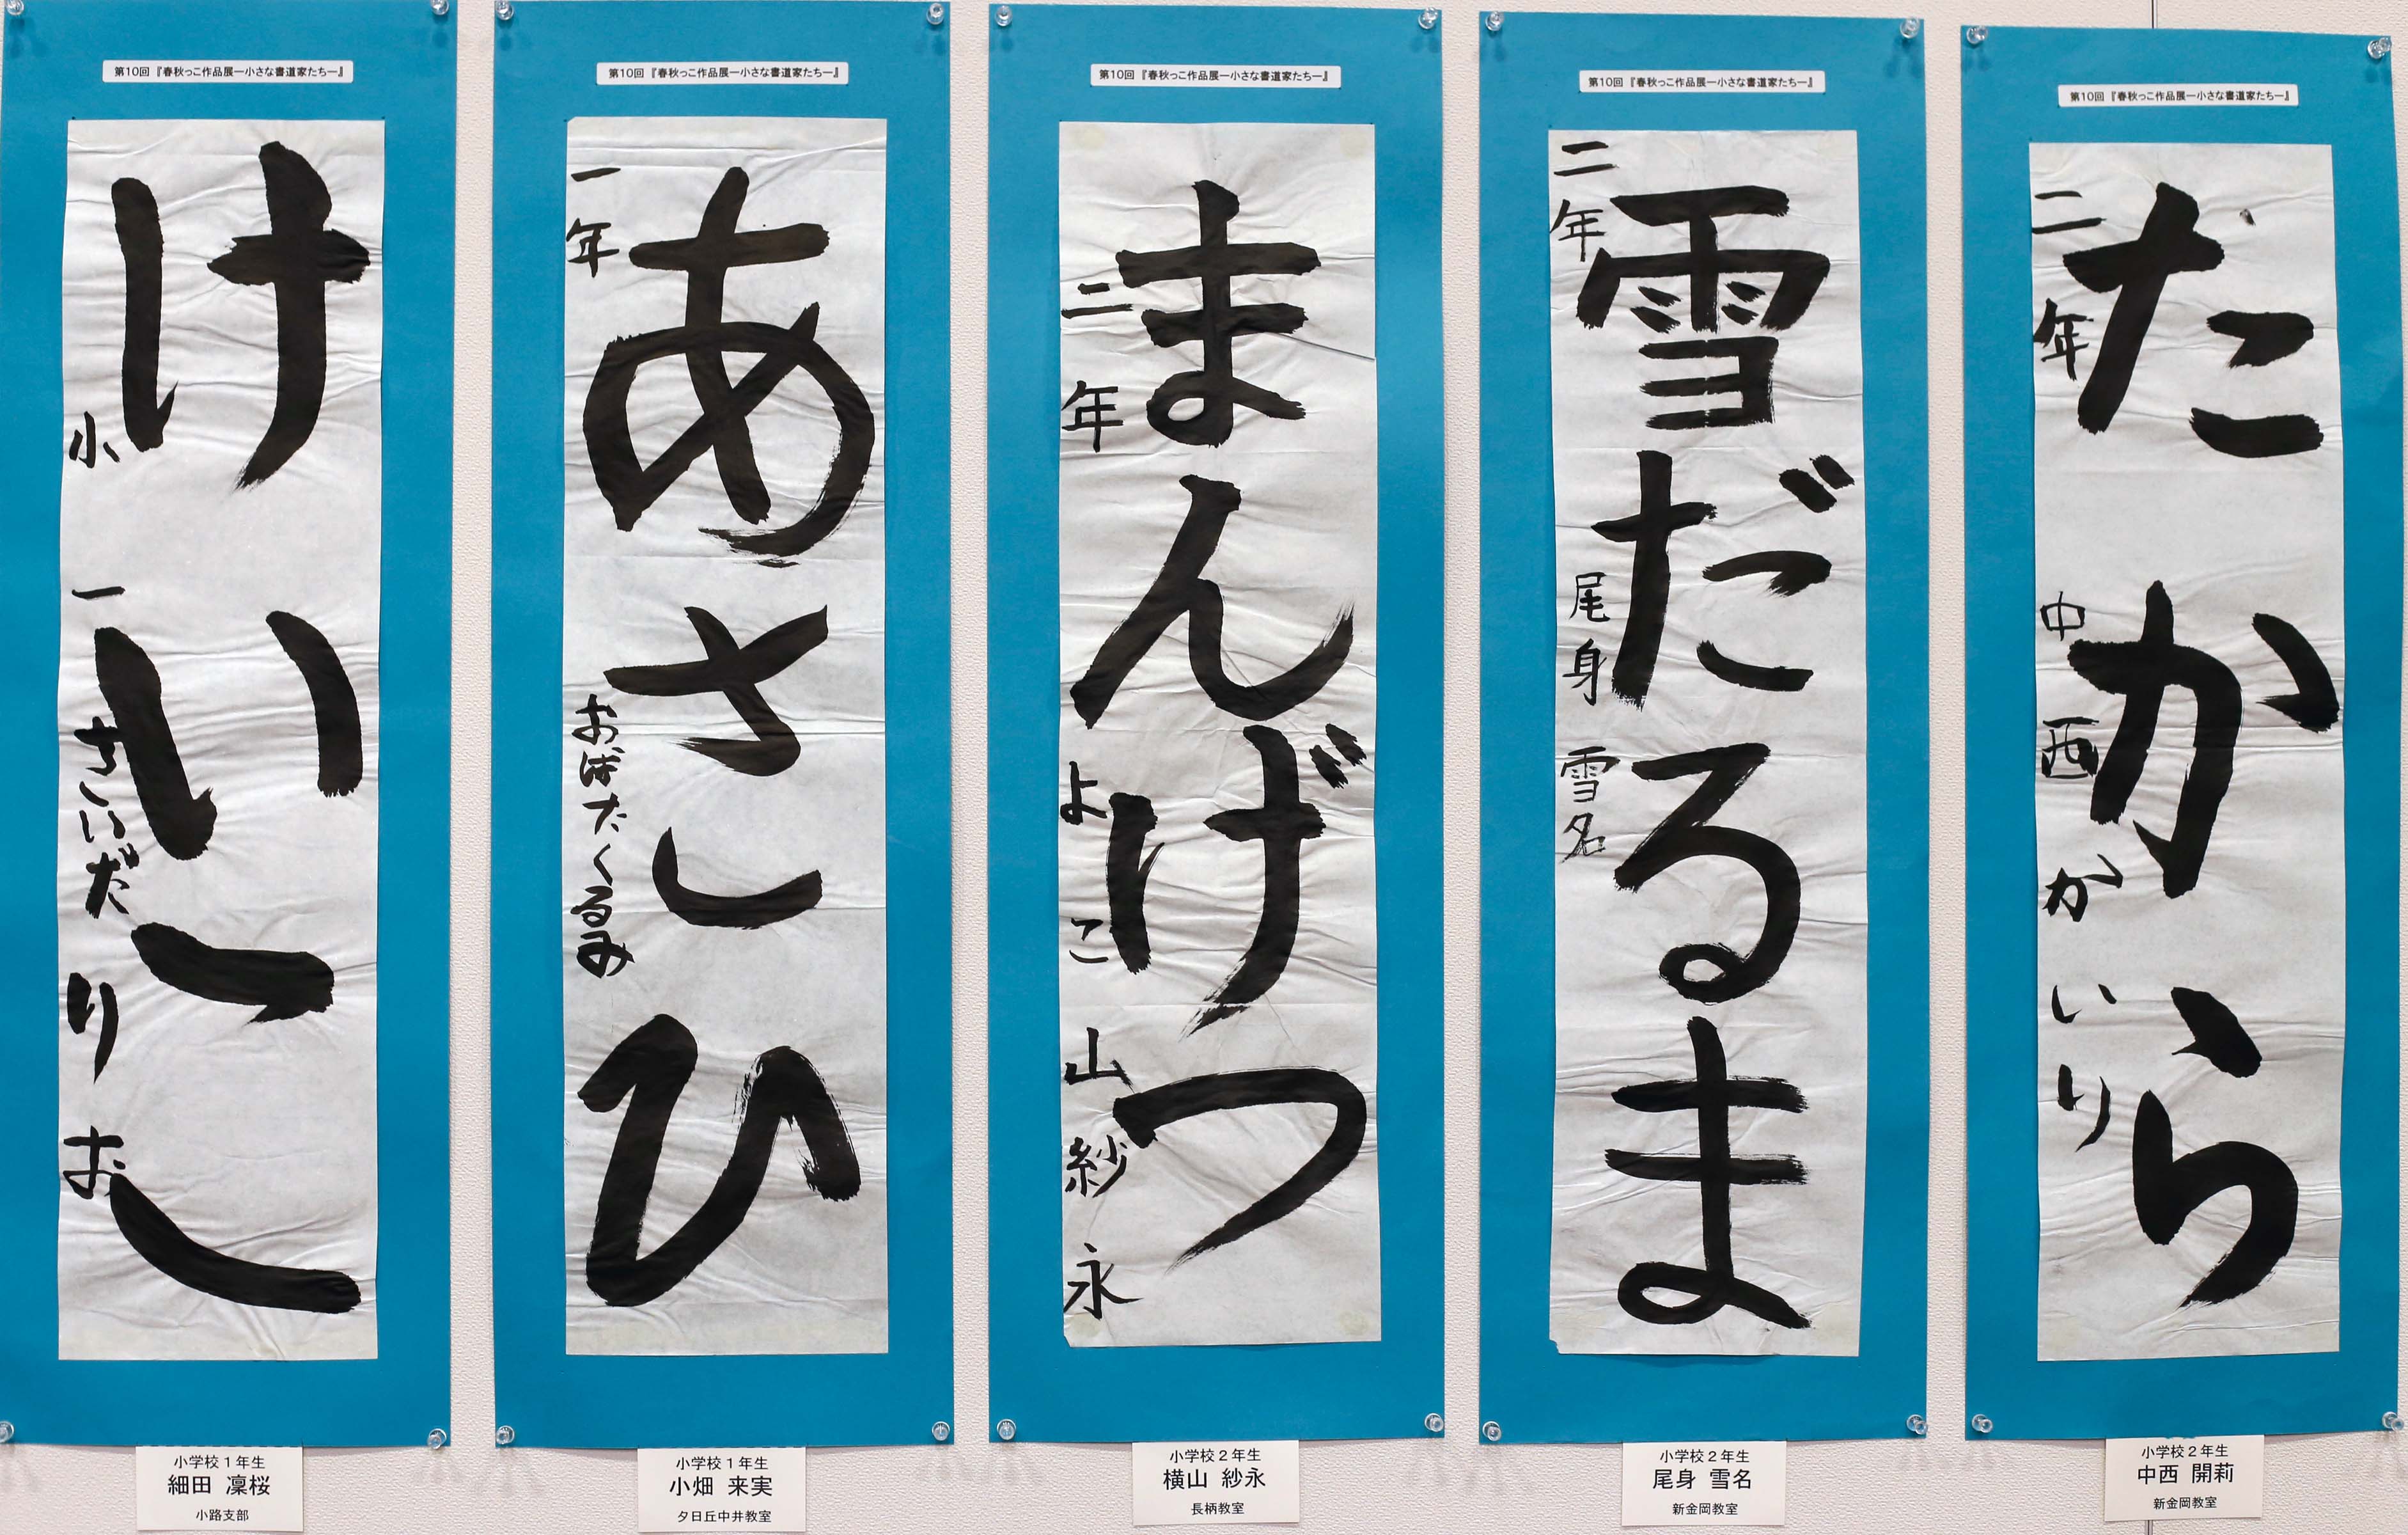 第10回『春秋っこ作品展―小さな書道家たち―』
けいこ
小一 さいだ りお
小学校1年生
細田 凜桜
小路支部
第10回『春秋っこ作品展―小さな書道家たち―』
あさひ
一年 おばたくるみ
小学校1年生
小畑 来実
夕日丘中井教室
第10回『春秋っこ作品展―小さな書道家たち―』
まんげつ
二年 よこ山紗永
小学校2年生
横山 紗永
長柄教室
第10回『春秋っこ作品展―小さな書道家たち―』
雪だるま
二年 尾身 雪名
小学校2年生
尾身 雪名
新金岡教室
第10回『春秋っこ作品展―小さな書道家たち―』
たから
二年 中西かいり
小学校2年生
中西 開莉
新金岡教室